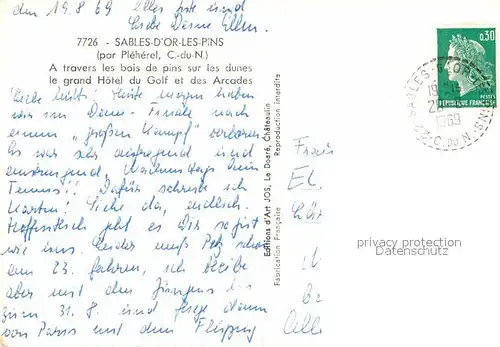 den 19.8 69 Alles gute und
liebe Deine Ellen
7726 - SABLES-D'OR-LES-PINS
(par Pléhérel, C.-du-N.)
A travers les bois de pins sur les dunes
le grand Hôtel du Golf et des Arcades
Liebe Heute morgen haben
wir im Damen-Finale nach
einem „großen Kampf" verloren.
Es war sehr aufregend und
anstrengend, Nachmittags kein
Tennis!! Dafür schreibe ich
Karten! Siehe da, endlich.
Hoffentlich geht es Dir so gut
wie uns. Leider muß
am 23. fahren, ich bleibe
aber mit den Jungens bis
zum 31. 8 und fliege dann
von Paris mit dem Flugzeug
Editions d'Art JOS, Le Doaré, Châteaulin
Fabrication Française Reproduction interdite
0,30
POSTES
REPUBLIQUE FRANÇAISE
SABLES-D'OR-LES-PINS
1969
C. DU N.
Frau
El
privacy protection
Datenschutz